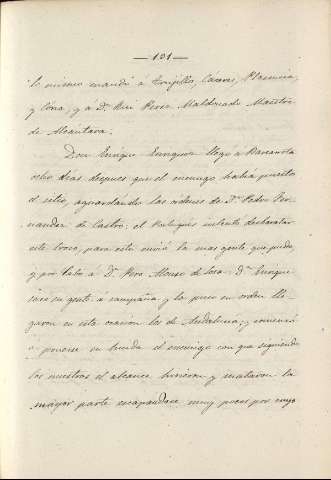 — 101 —
lo mismo mandó á Trujillo, Caceres, Plasencia,
y Coria, y a Dn. Rui Perez Maldonado Maestre
de Alcantara.
Don Enrique Enriquez llegó a Barcarrota
ocho dias despues que el enemigo había puesto
el sitio, aguardando las ordenes de Dn. Pedro Fer-
nandez de Castro; el Portugués intentó
este trozo, para esto envió la mas gente que pudo,
y por Cabo á Dn. Pero Alonso de Sosa: Dn. Enrique
sacó su gente á campaña y la puso en orden, lle-
garon en esta ocasion los de Andalucia, y comenzó
a ponerse en huida el enemigo con que siguiendo
los nuestros el alcance hirieron y mataron la
mayor parte escapandose muy pocos por cuyo